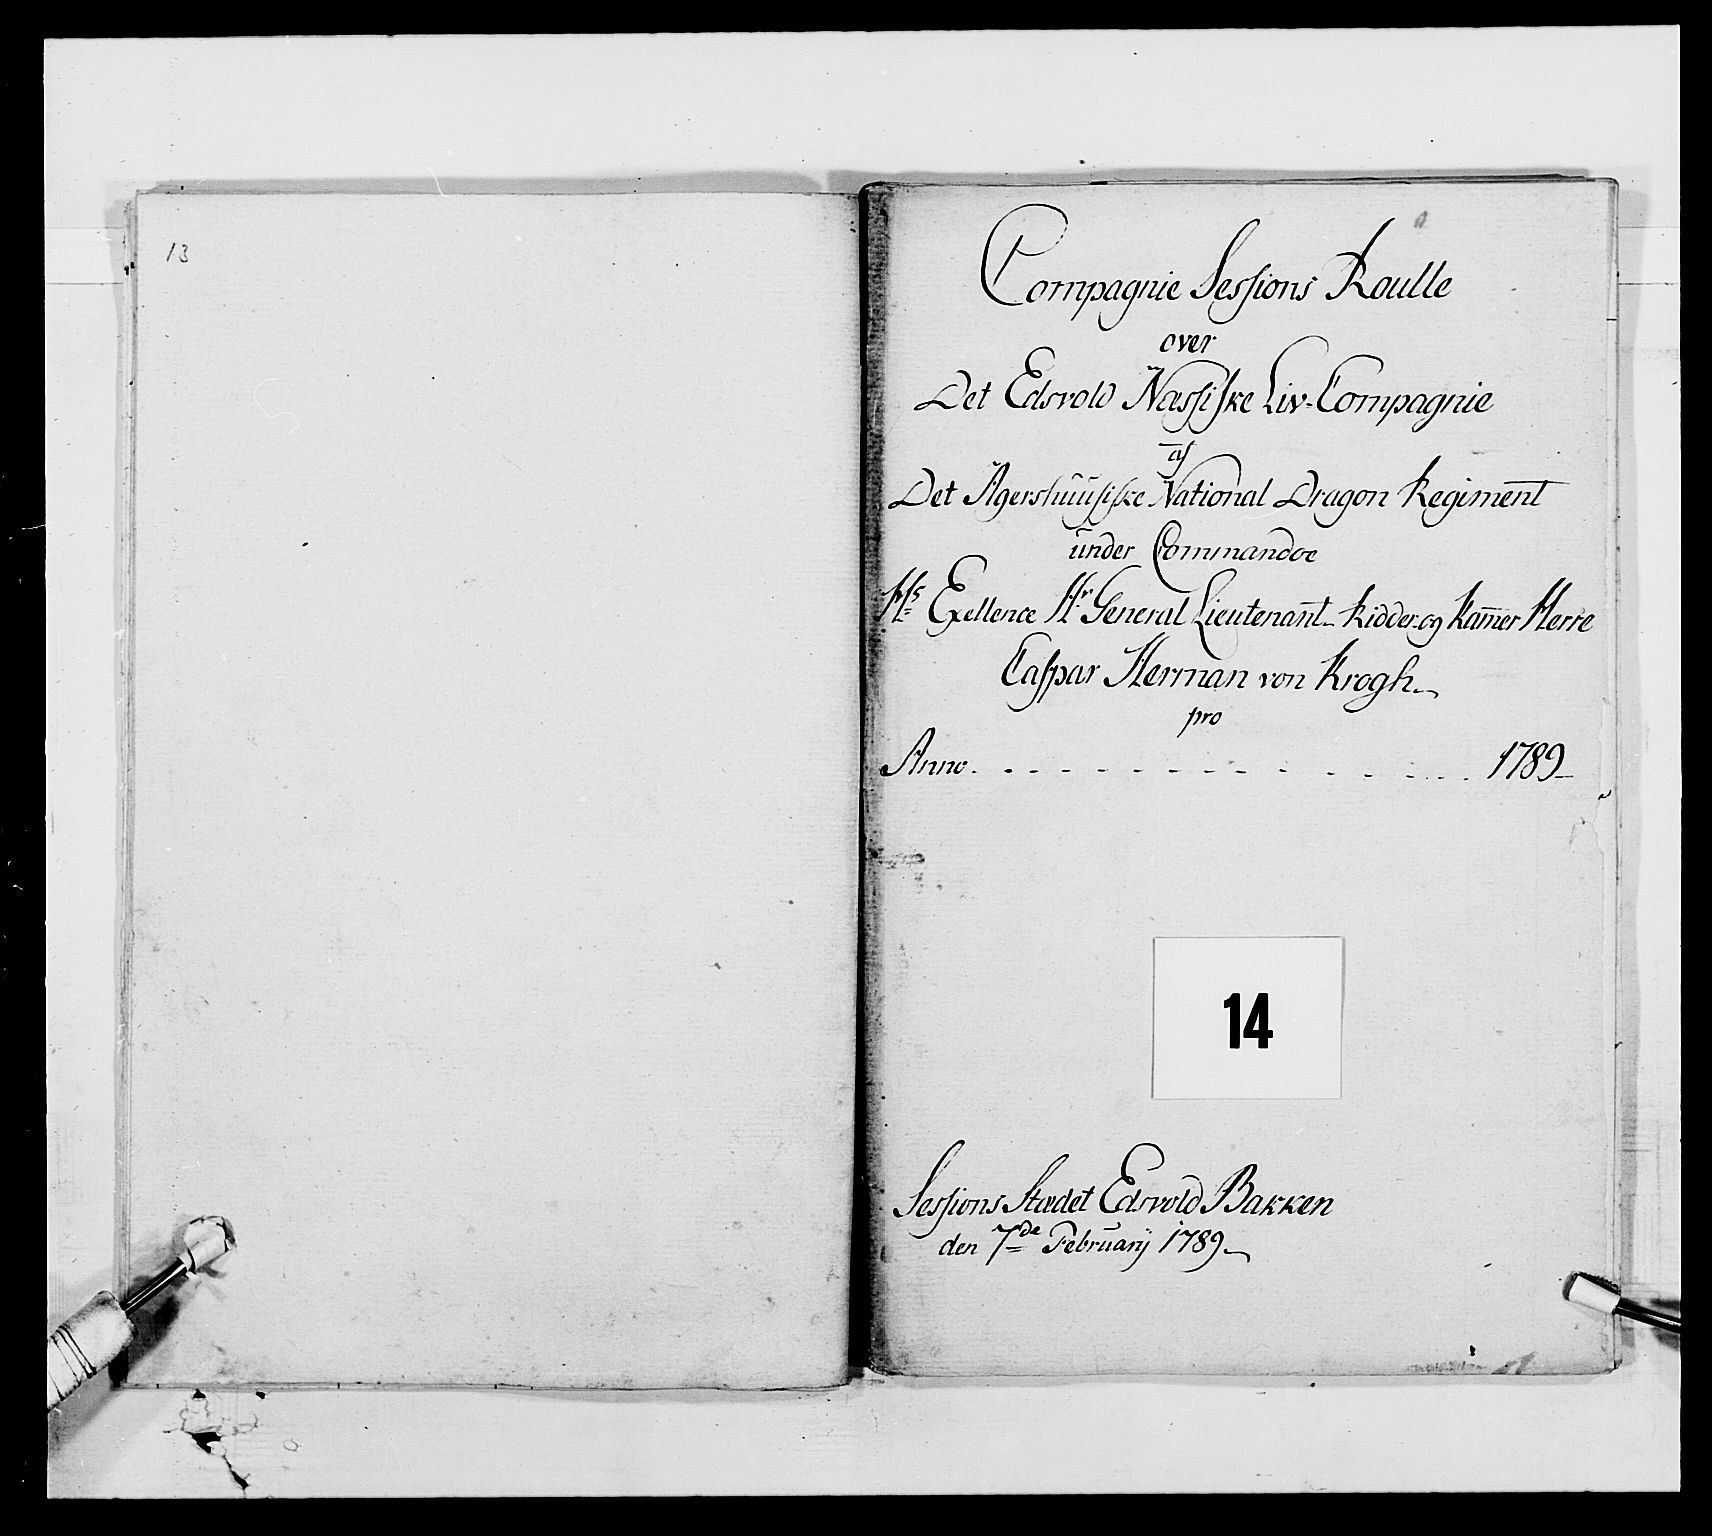 13
Compagnie Sessions Roulle
over
Det Edsvold Næssiske Liv-Compagnie
af
Det Agershuusiske National Dragon Regiment
under Commandoe
Hs Exellence Hr General Lieutenant Ridder og Kam̄er Herre
Caspar Herman von Krogh
pro
Anno. - - - - - - - - - - - - - - - - - 1789
14
Sessions Stædet Edsvold Bakken
den 7de Februarij 1789